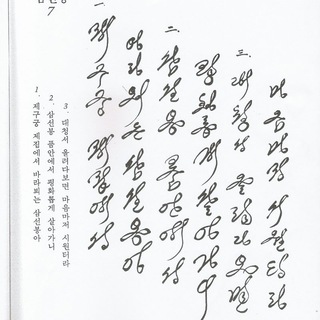 7
1. 제구궁 제집에서 바라뵈는 삼선봉아
2. 삼선봉 품안에서 평화롭게 살아가니
3. 대청서 올려다보면 마음마저 시원터라
一. 제구궁 제집에서
바라뵈는 삼선봉아
二. 삼선봉 품안에서
평화롭게 살아가니
三. 대청서 올려다보면
마음마저 시원터라